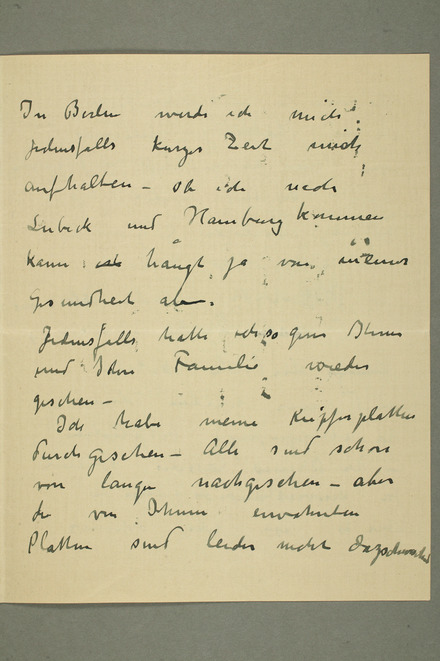 In Berlin werde ich mich
jedenfalls kurze Zeit mich
aufhalten – ob ich nach
Lubeck und Hamburg kommen
kann hängt ja von meiner
Gesundheit ab.
Jedenfalls hatte ich so gern Ihnen
und Ihre Familie wieder
gesehen –
Ich habe meine Kupferplatten
durchgesehen – Alle sind schon
von lange nachgesehen – aber
die von Ihnen erwähnten
Platten sind leider nicht dazwischen